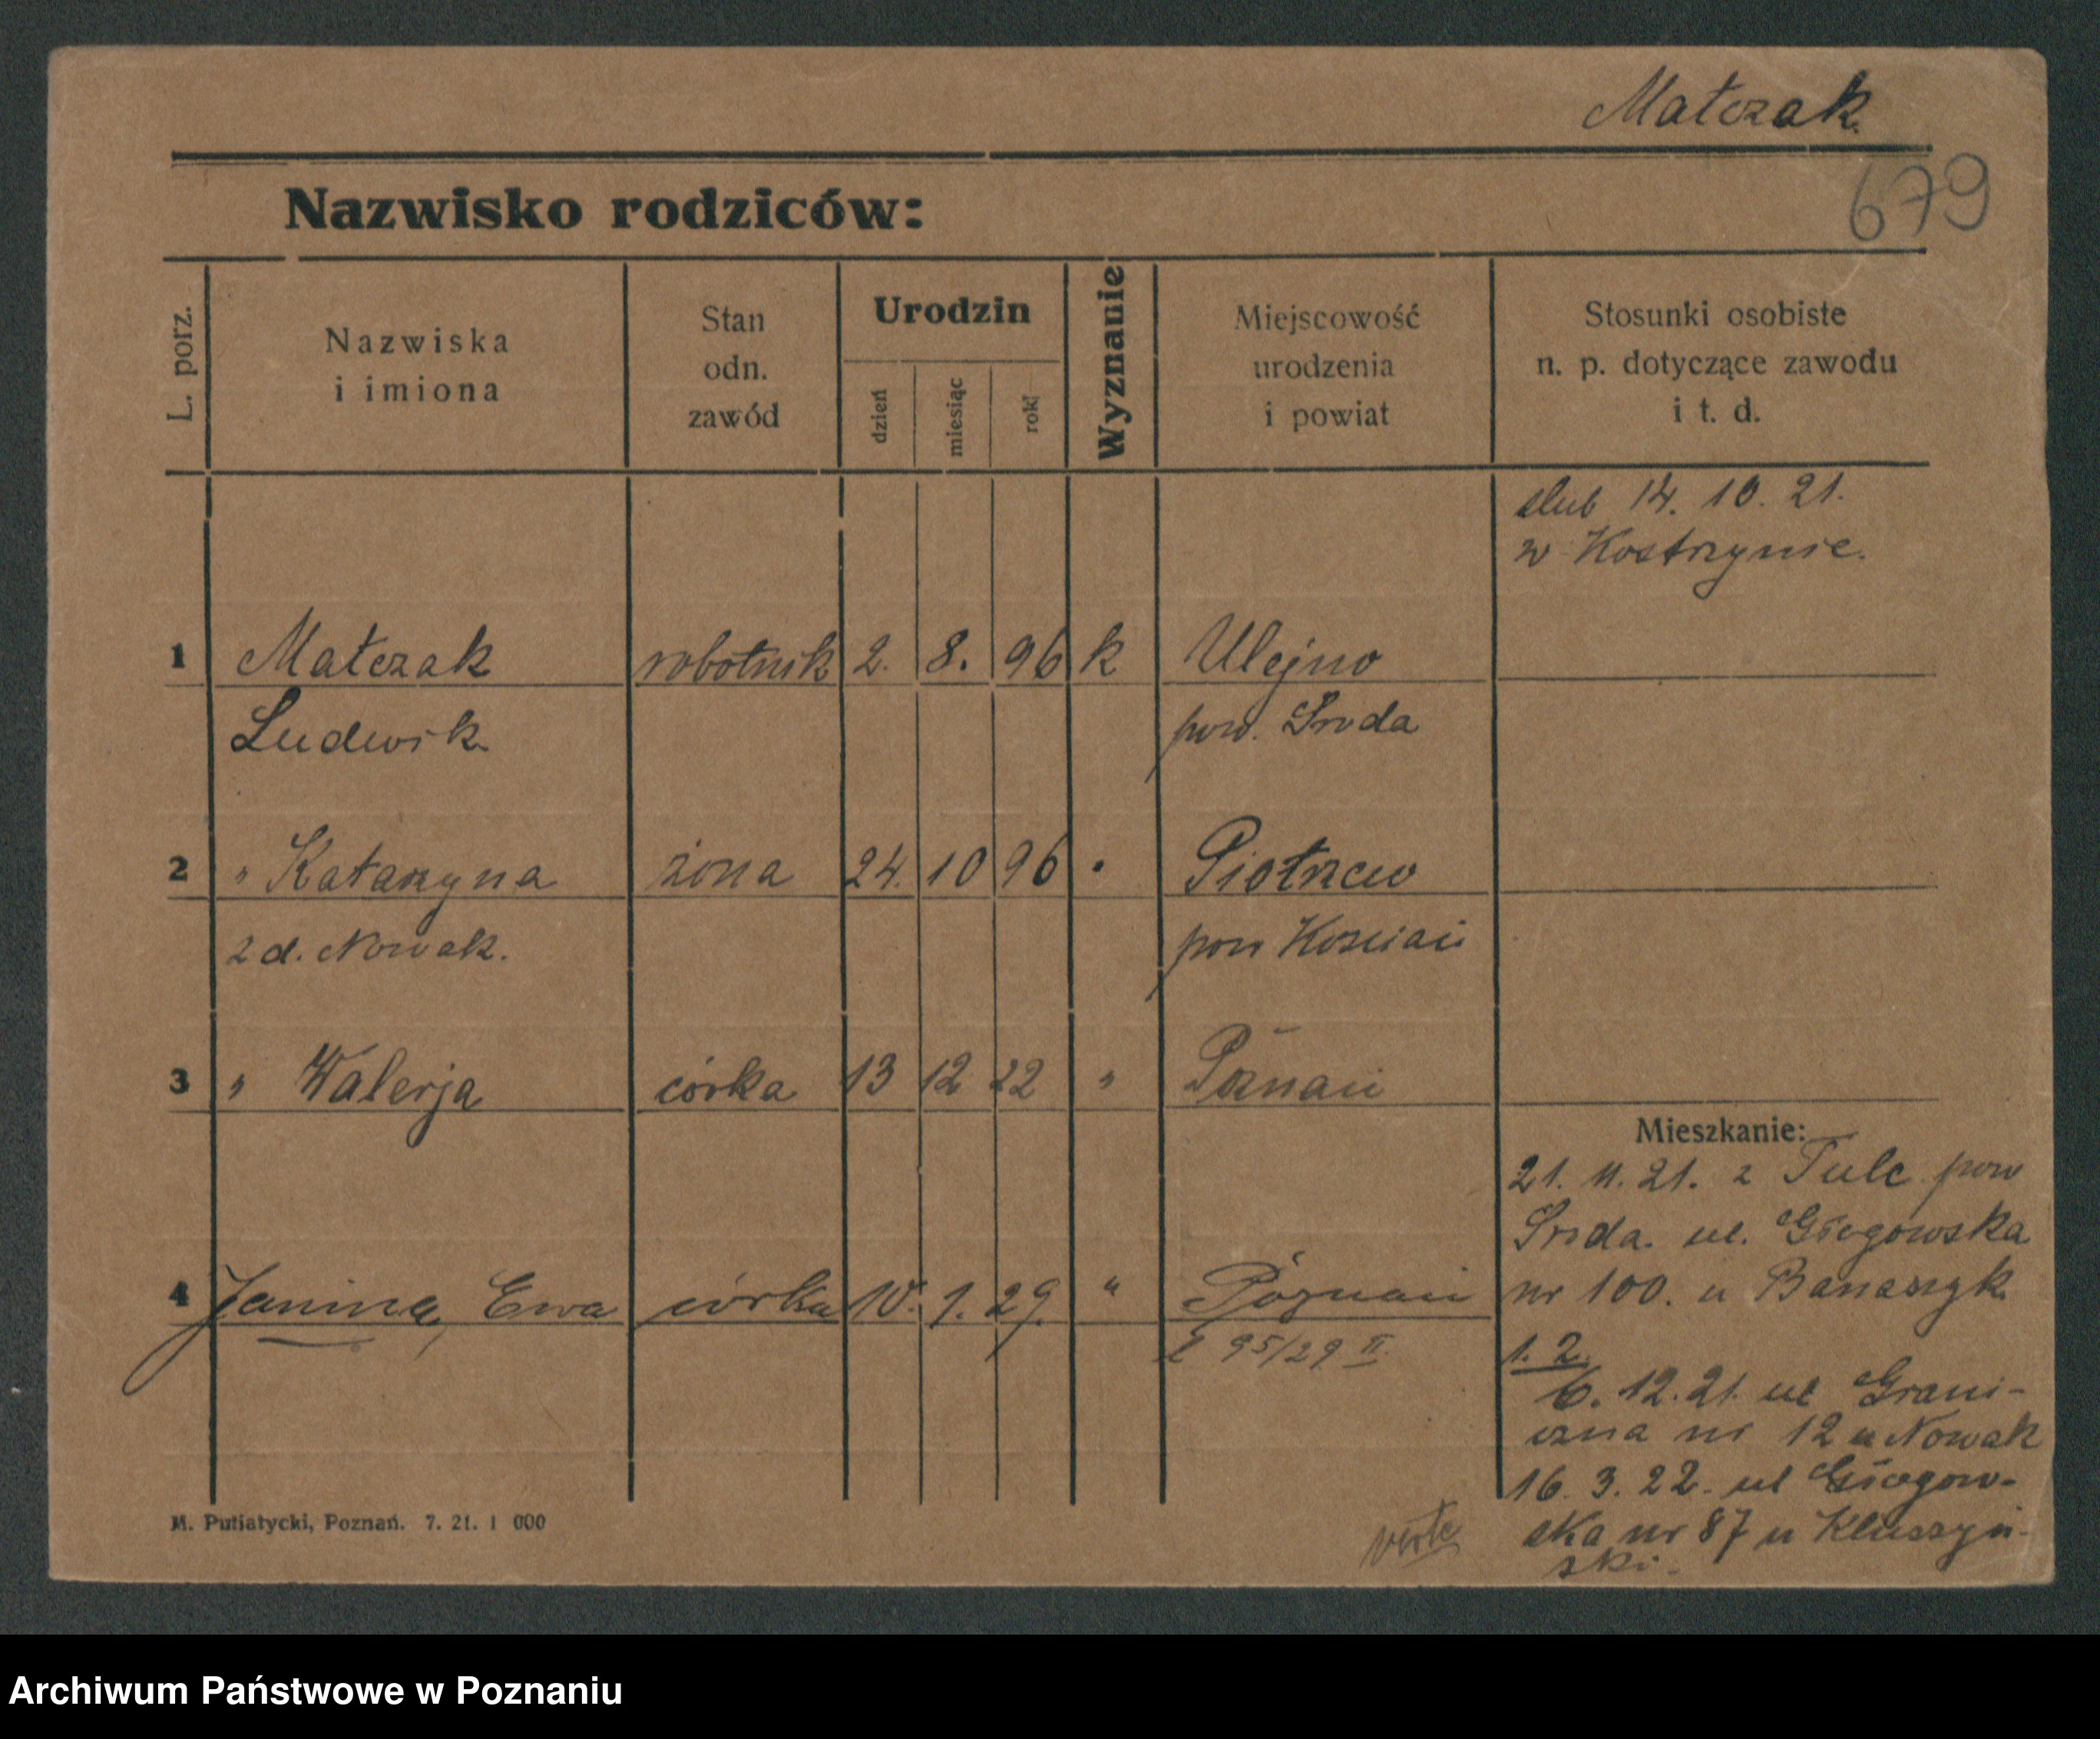 Małczak
679
Nazwisko rodziców:
L. porz.
Nazwiska
i imiona
Stan
odn.
zawód
Urodzin
dzień
miesiąc
rok
Wyznanie
Miejscowość
urodzenia
i powiat
Stosunki osobiste
n. p. dotyczące zawodu
i t. d.
ślub 14. 10. 21.
w Kostrzynie.
1 Małczak robotnik 2. 8. 96 k Ulejno
Ludwik pow. Środa
2 " Katarzyna żona 24. 10 96 " Piotrzew
z d. Nowak. pow Kościań
3 " Walerja córka 13 12 22 " Poznań
Mieszkanie:
21. 11. 21. z Tulc pow
Środa. ul. Głogowska
4 Janina, Ewa córka 10. 1. 29. " Poznań
nr 100. u Banaszyk
95/29 II.
1. 2.
6. 12. 21. ul Grani-
czna nr 12 u Nowak
16. 3. 22. ul Głogow-
ska nr 87 u Kluszyń-
ski.
verte
M. Putiatycki, Poznań. 7. 21. 1 000
Archiwum Państwowe w Poznaniu